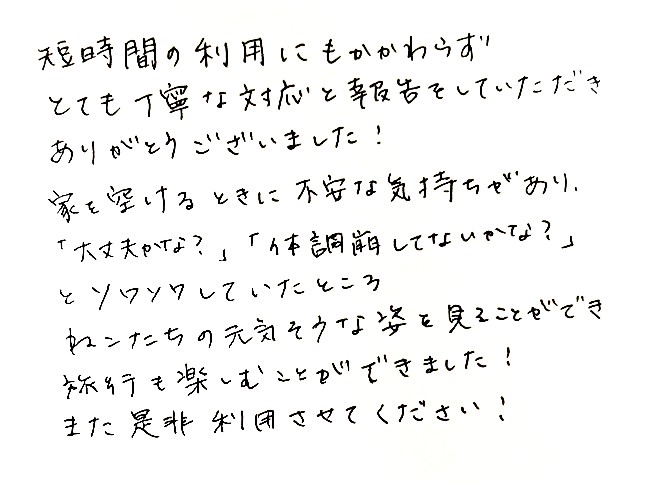 短時間の利用にもかかわらず
とても丁寧な対応と報告をしていただき
ありがとうございました!
家を空けるときに不安な気持ちがあり、
「大丈夫かな?」「体調崩してないかな?」
とソワソワしていたところ
ねこたちの元気そうな姿を見ることができ
旅行も楽しむことができました!
また是非利用させてください!